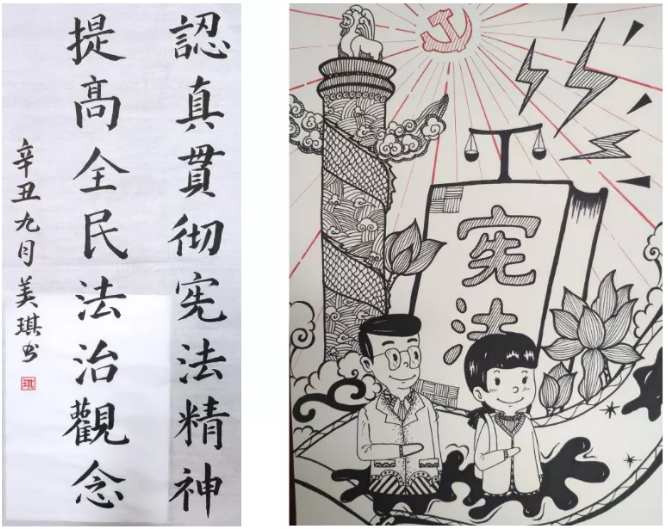 認真貫彻宪法精神
提高全民法治觀念
辛丑九月美琪书
琪
宪法